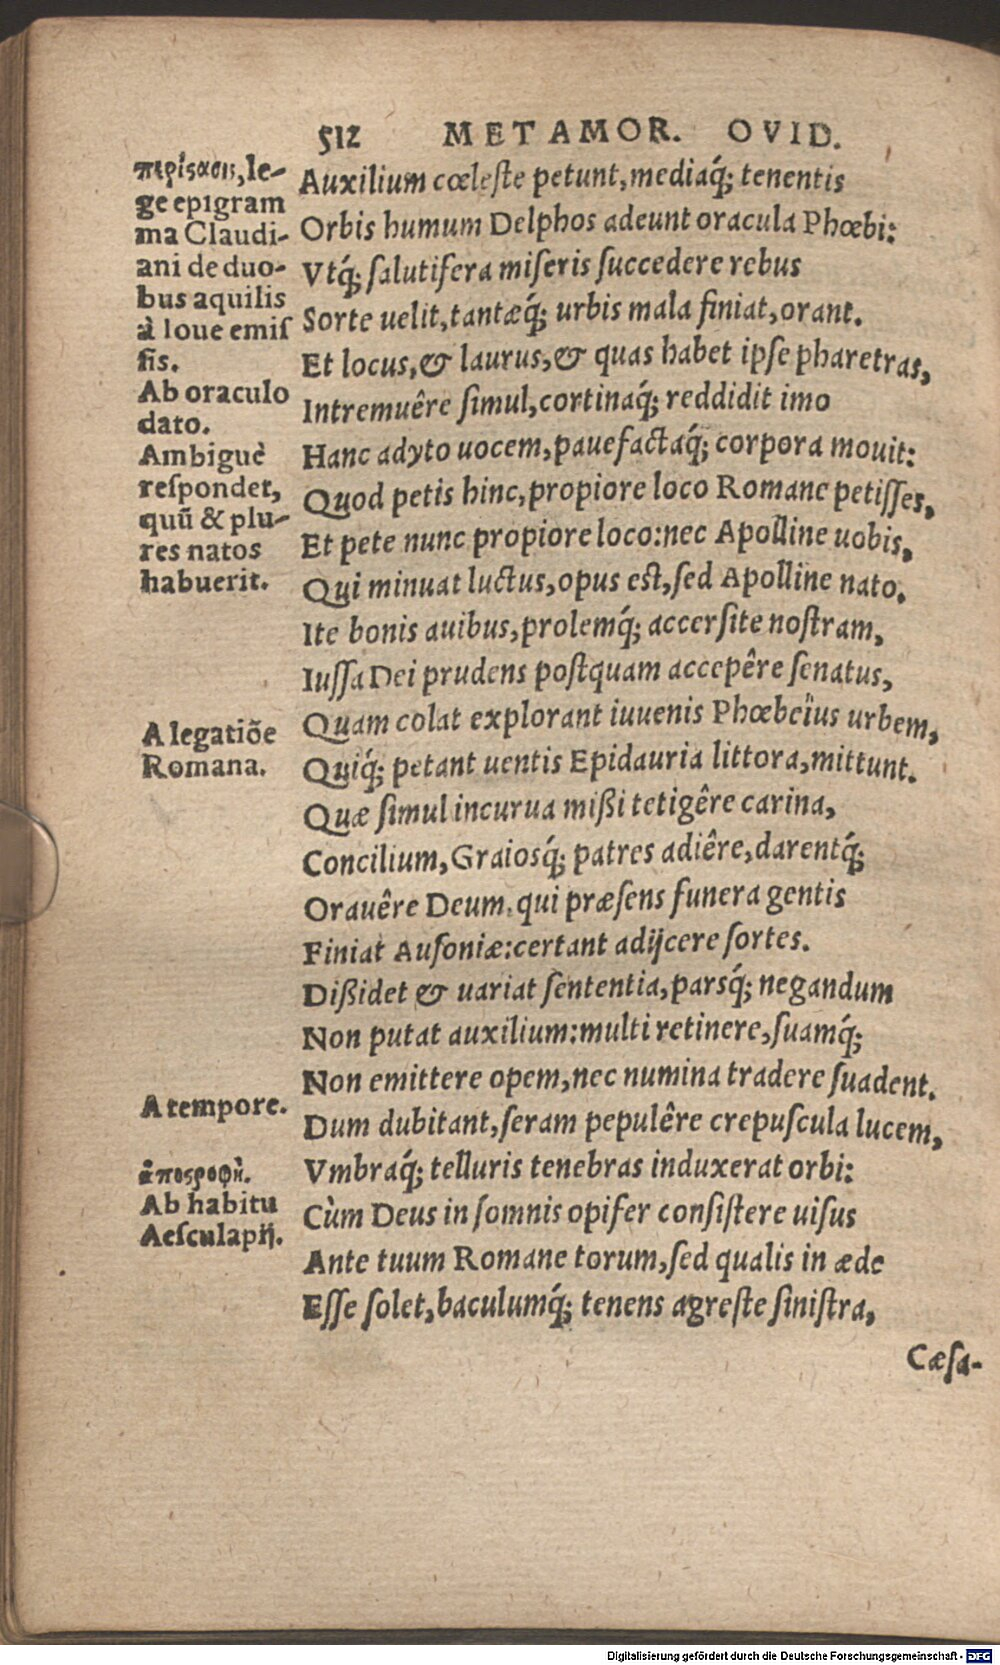 512 METAMOR. OVID.
περίφρασις, le-
ge epigram
ma Claudi-
ani de duo-
bus aquilis
à Ioue emiſ
ſis.
Ab oraculo
dato.
Ambiguè
reſpondet,
quũ & plu-
res natos
habuerit.
A legatiõe
Romana.
A tempore.
ἀποστροφὴ.
Ab habitu
Aeſculapij.
Auxilium cœleſte petunt, mediaq́; tenentis
Orbis humum Delphos adeunt oracula Phœbi:
Vtq́; ſalutifera miſeris ſuccedere rebus
Sorte uelit, tantæq́; urbis mala finiat, orant.
Et locus, & laurus, & quas habet ipſe pharetras,
Intremuêre ſimul, cortinaq́; reddidit imo
Hanc adyto uocem, pauefactaq́; corpora mouit:
Quod petis hinc, propiore loco Romane petiſſes,
Et pete nunc propiore loco: nec Apolline uobis,
Qui minuat luctus, opus eſt, ſed Apolline nato.
Ite bonis auibus, prolemq́; accerſite noſtram,
Iuſſa Dei prudens poſtquam accepêre ſenatus,
Quam colat explorant iuuenis Phœbeïus urbem,
Quiq́; petant uentis Epidauria littora, mittunt.
Quæ ſimul incurua mißi tetigêre carina,
Concilium, Graiosq́; patres adiêre, darentq́;
Orauêre Deum, qui præſens funera gentis
Finiat Auſoniæ: certant adijcere ſortes.
Dißidet & uariat ſententia, parsq́; negandum
Non putat auxilium: multi retinere, ſuamq́;
Non emittere opem, nec numina tradere ſuadent.
Dum dubitant, ſeram pepulêre crepuſcula lucem,
Vmbraq́; telluris tenebras induxerat orbi:
Cùm Deus in ſomnis opifer conſiſtere uiſus
Ante tuum Romane torum, ſed qualis in æde
Eſſe ſolet, baculumq́; tenens agreſte ſiniſtra,
Cæſa-
Digitalisierung gefördert durch die Deutsche Forschungsgemeinschaft - DFG